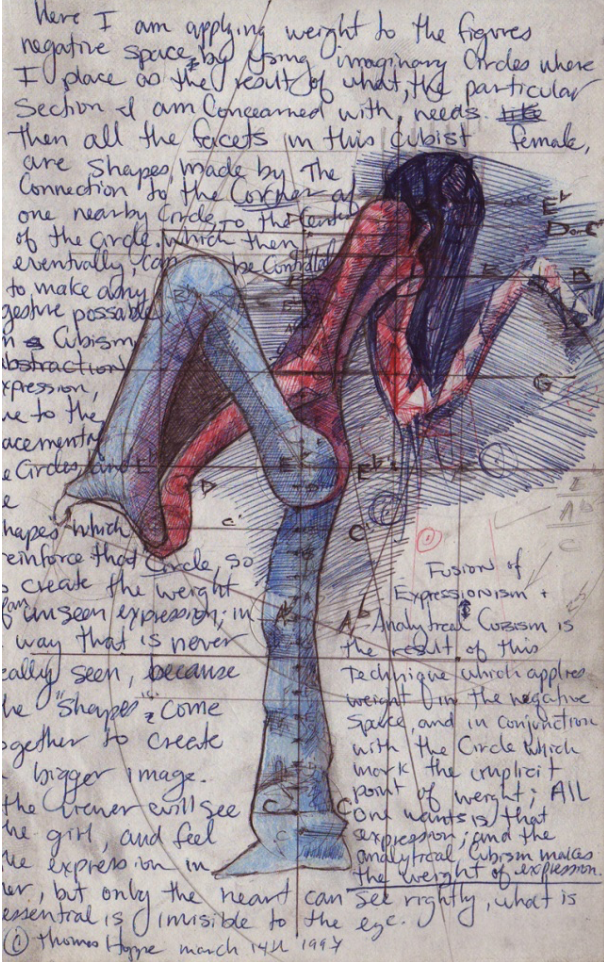 Here I am applying weight to the figures
negative space, by using imaginary Circles where
I place as the result of what, the particular
Section I am Concearned with, needs.
then all the facets in this Cubist female,
are Shapes, made by The
Connection to the Corner of
one nearby Circle, to the Center
of the Circle. Which then
eventually, can be Controlled
to make any
gesture possable
Cubism
bstraction
xpression,
ue to the
acement
e Circles, and
hapes" which
einforce that Circle, so
create the weight
unseen expression; in
way that is never
eally seen, because
he "Shapes" Come
ogether to create
bigger image.
the viewer will see
he girl, and feel
he expression in
er, but only the heart can see rightly, what is
essential is invisible to the eye.
© Thomas Hoppe march 14th 1997
Fusion of
Expressionism +
Analytical Cubism is
the result of this
Technique which applies
weight in the negative
Space, and in conjunction
with the Circle which
mark the implicit
point of weight; All
one wants is that
expression; and the
analytical Cubism makes
the weight of expression.
E♭
E
B
G
D
E
E♭
C
C
A♭
A♭
C
C
C